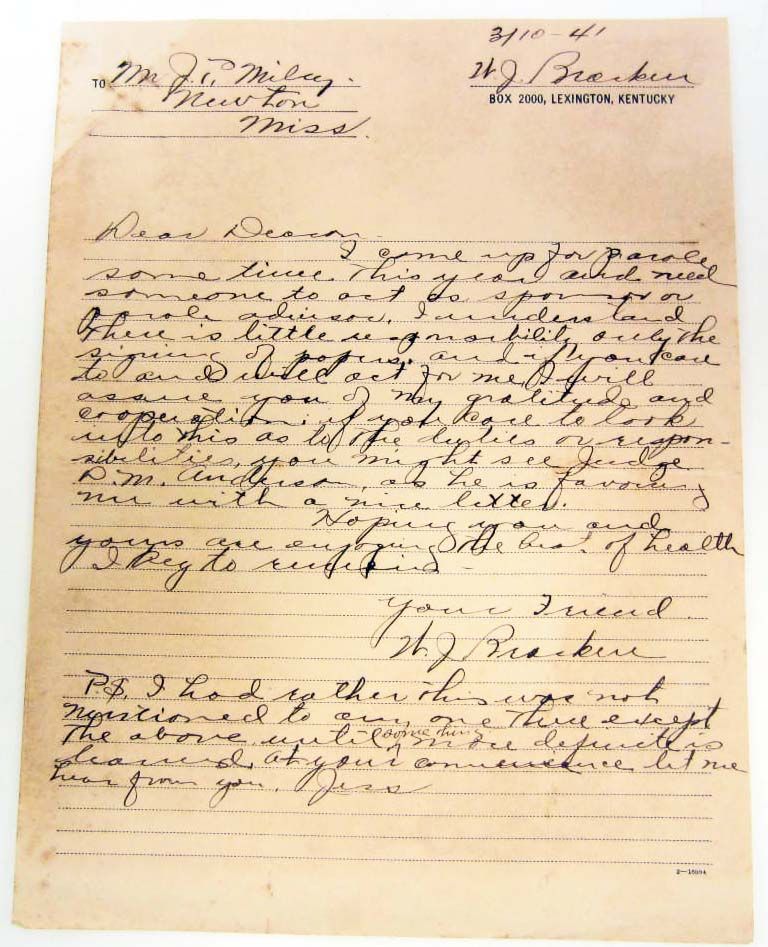 3/10-41
TO Mr J. P. Miley.
W. J. Bracken
Newton
BOX 2000, LEXINGTON, KENTUCKY
Miss.
Dear Deacon
I come up for parole
some time this year and need
someone to act as sponsor or
parole advisor, I understand
there is little responsibility only the
signing of papers. and if you care
to and will act for me I will
assure you of my gratitude and
cooperation. if you care to look
into this as to the duties or respon-
sibilities, you might see Judge
D. M. Anderson, as he is favoring
me with a nice letter.
Hoping you and
yours are enjoying the best of health
I beg to remain
Your Friend
W J Bracken
P.S. I had rather this was not
mentioned to any one there except
the above, until something more definite is
learned, at your convenience let me
hear from you. Jess